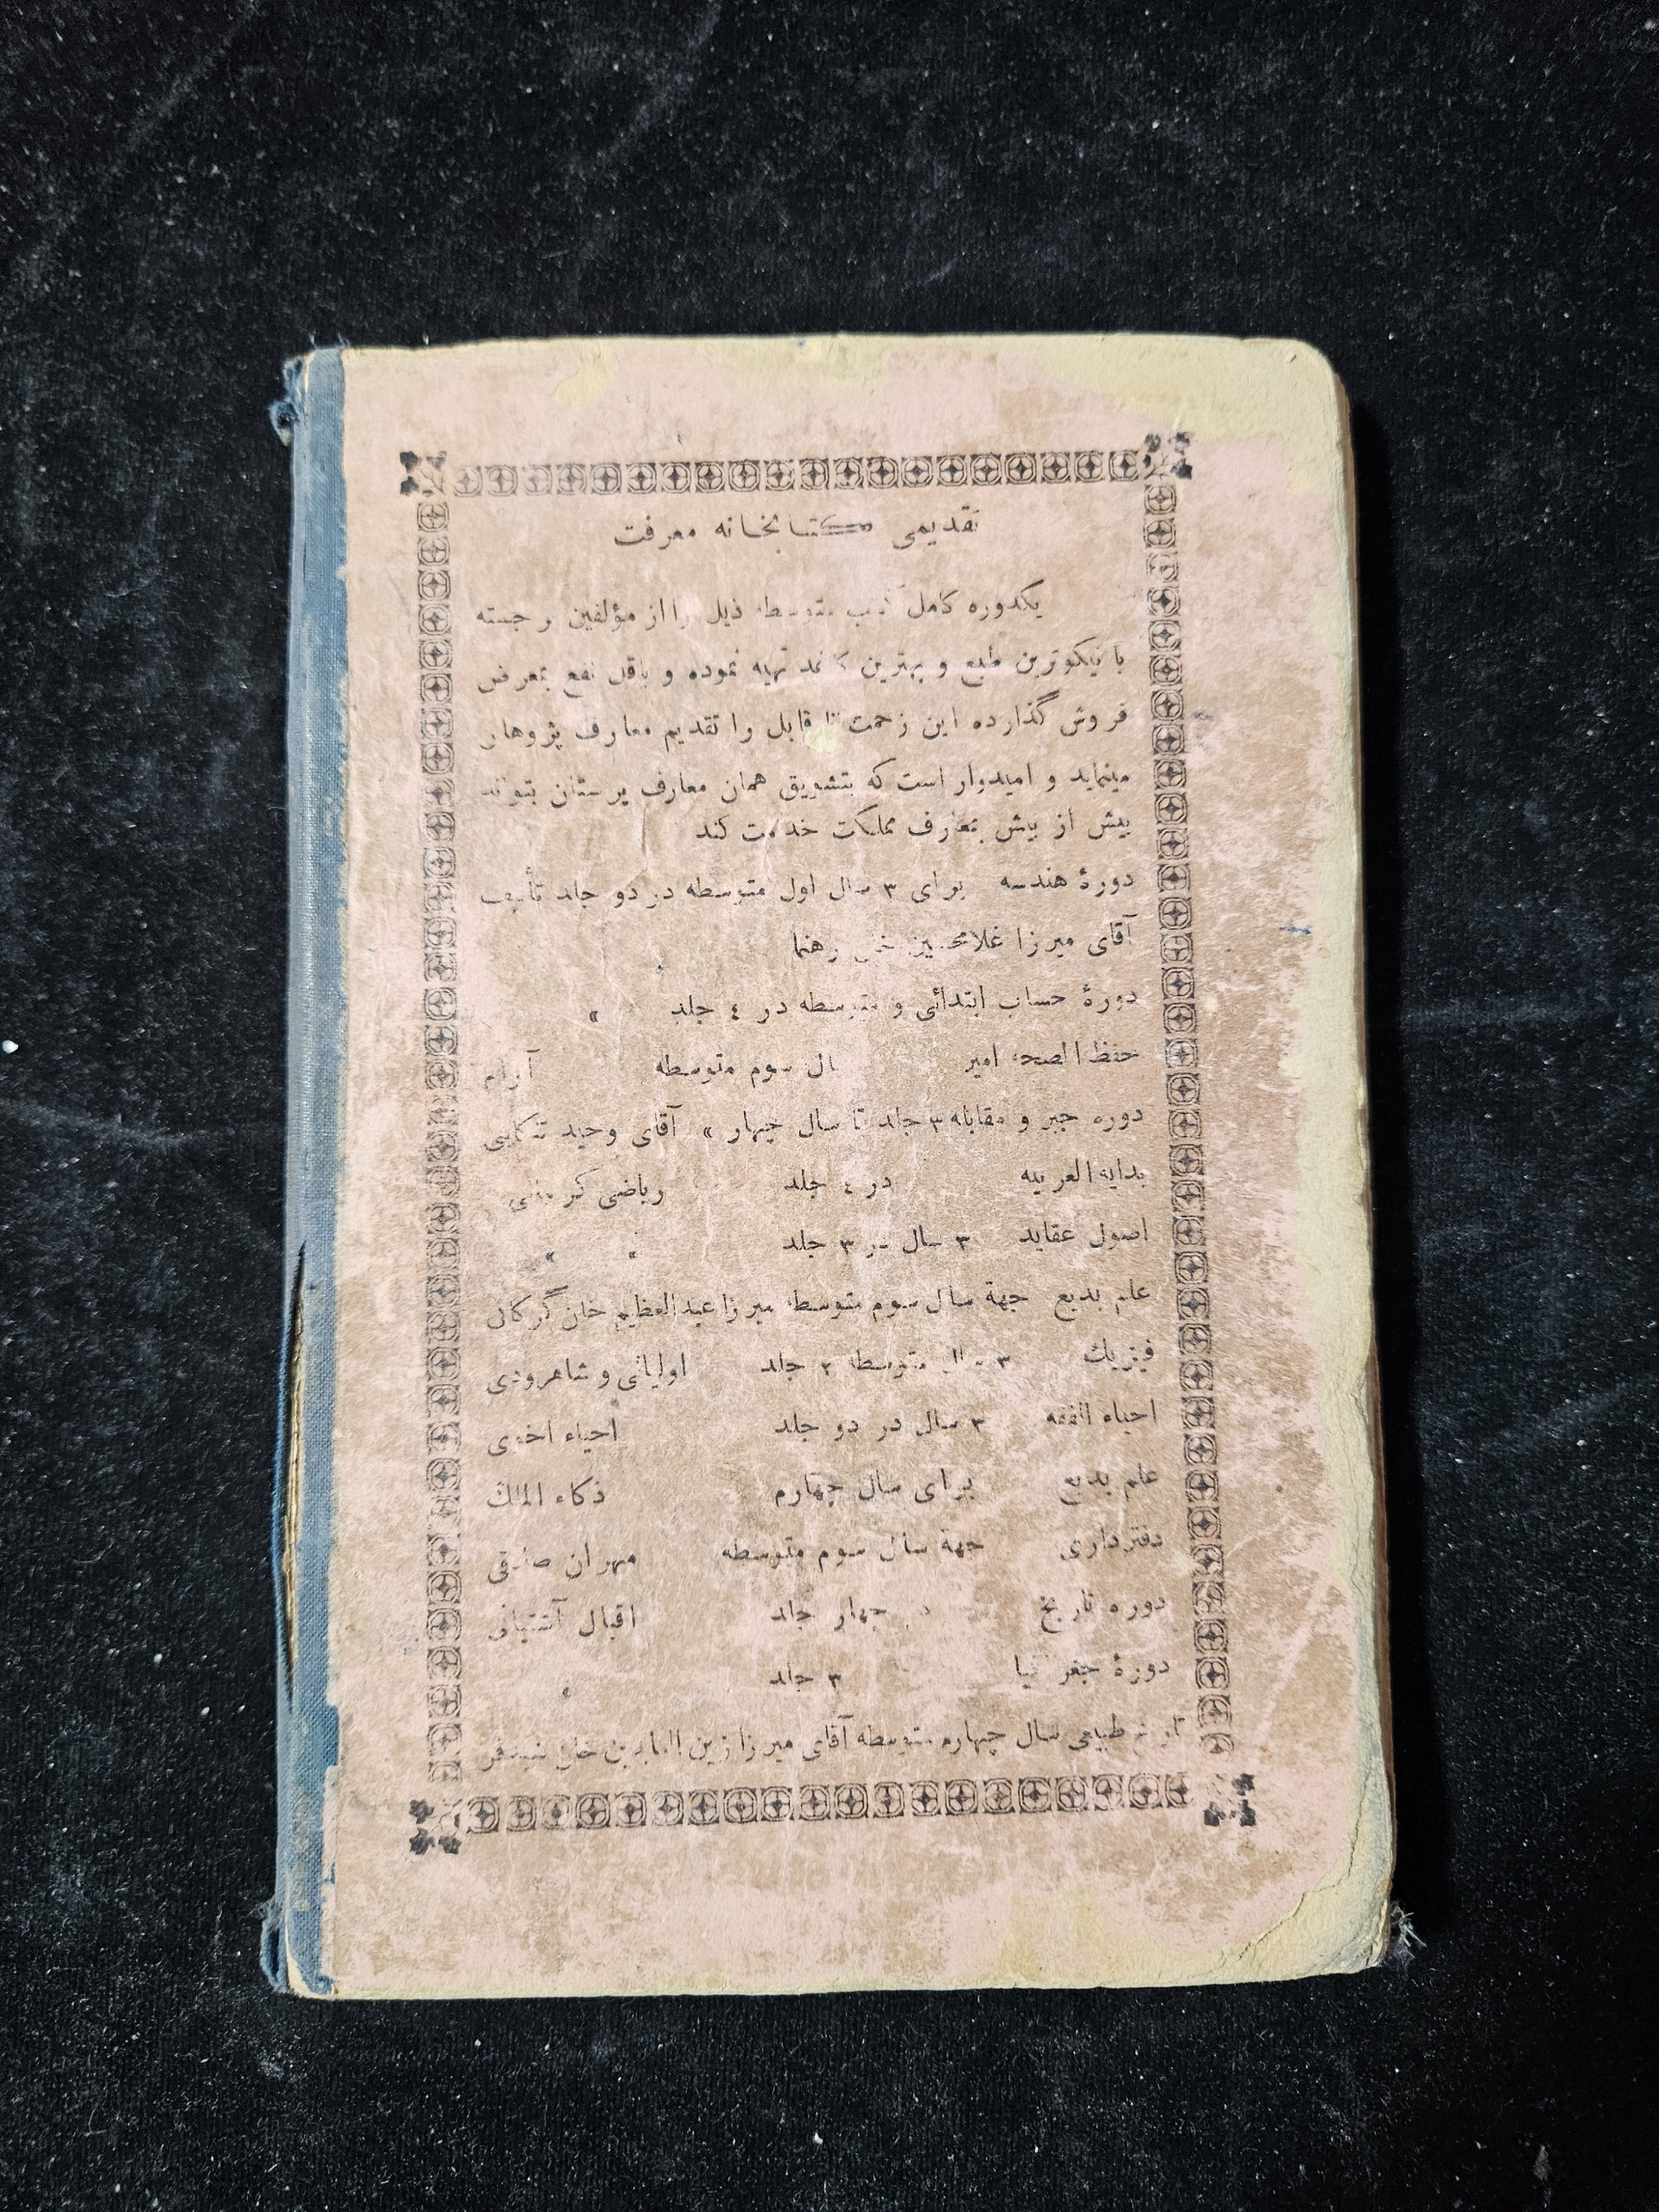 تقدیمی کتابخانه معرفت
یکدوره کامل کتب متوسطه ذیل را از مؤلفین برجسته
با نیکوترین طبع و بهترین کاغذ تهیه نموده و باقل نفع بمعرض
فروش گذارده این زحمت نا قابل را تقدیم معارف پژوهان
مینماید و امیدوار است که بتشویق همان معارف پرستان بتواند
بیش از پیش بمعارف مملکت خدمت کند
دورهٔ هندسه برای ۳ سال اول متوسطه در دو جلد تألیف
آقای میرزا غلامحسین خان رهنما
دورهٔ حساب ابتدائی و متوسطه در ٤ جلد »
حفظ الصحه امیر سال سوم متوسطه آرام
دوره جبر و مقابله ۳ جلد تا سال چهار » آقای وحید تنکابنی
بدایه العربیه در ٤ جلد ریاضی کرمانی
اصول عقاید ۳ سال در ۳ جلد » »
علم بدیع جهة سال سوم متوسطه میرزا عبدالعظیم خان گرکانی
فیزیك ۳ سال متوسطه ۲ جلد اولیائی و شاهرودی
احیاء الفقه ۳ سال در دو جلد احیاء اخوی
علم بدیع برای سال چهارم ذکاء الملك
دفترداری جهة سال سوم متوسطه مهران صادقی
دوره تاریخ در چهار جلد اقبال آشتیانی
دورهٔ جغرافیا ۳ جلد »
تاریخ طبیعی سال چهارم متوسطه آقای میرزا زین العابدین خان